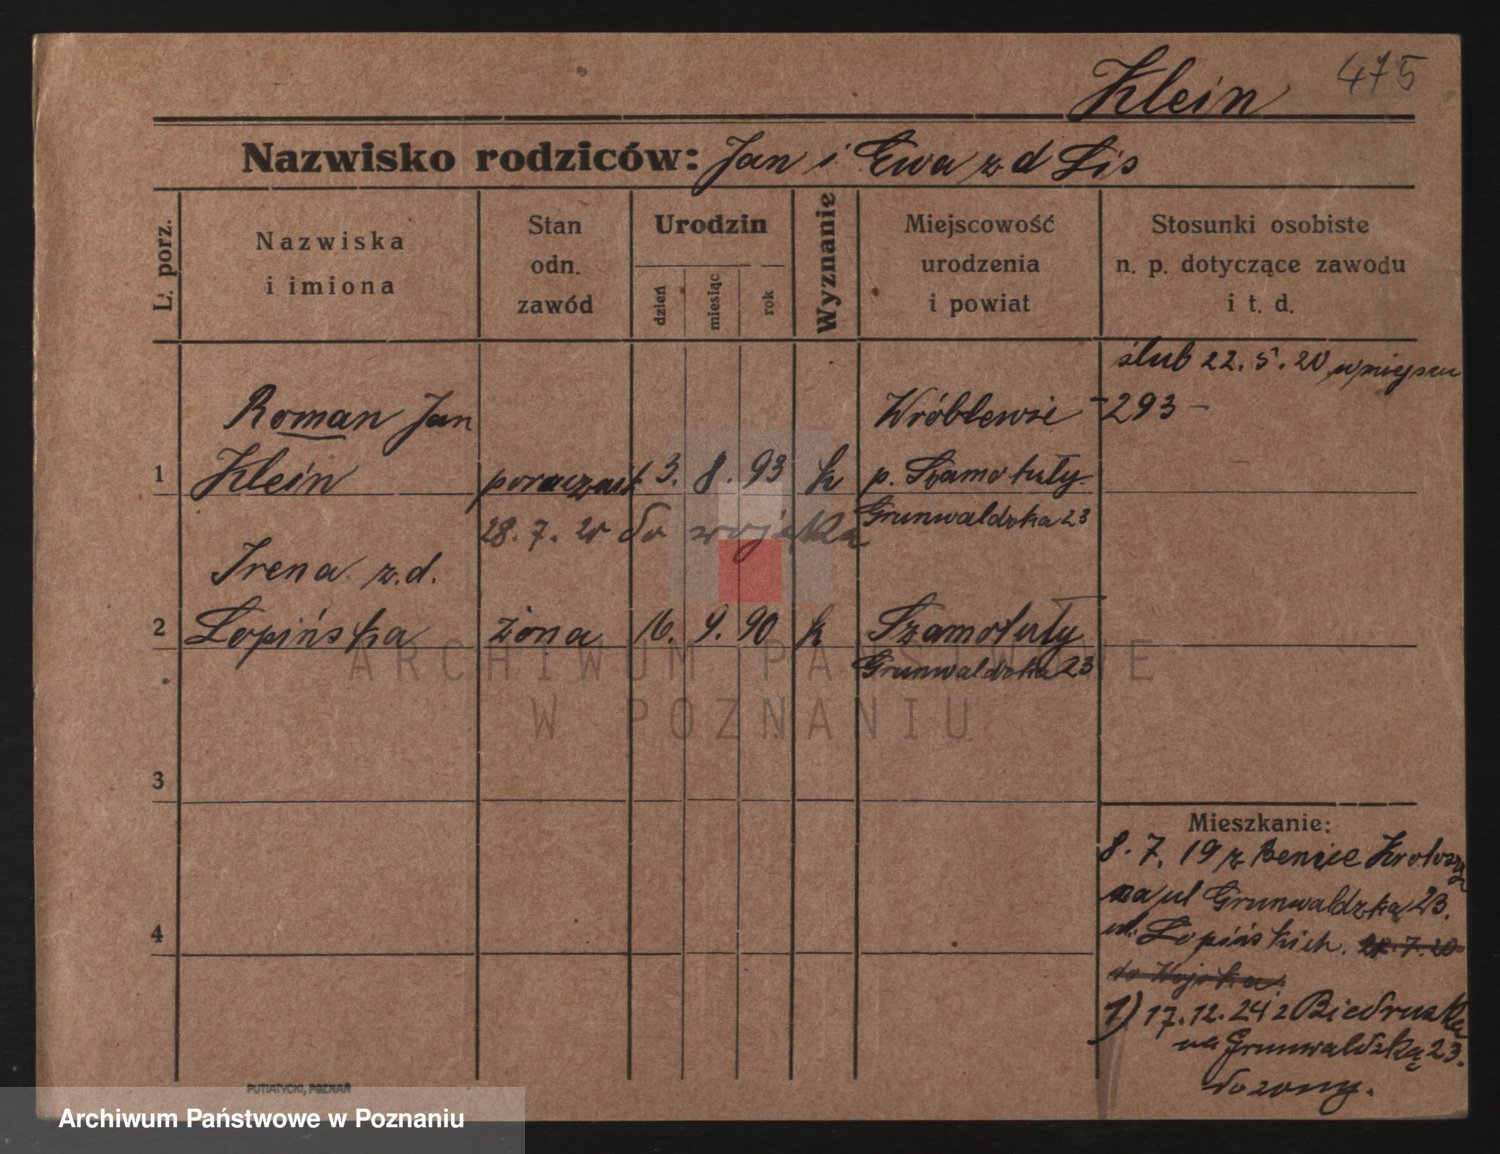 Klein 475
Nazwisko rodziców: Jan i Ewa z d Lis
L. porz.
Nazwiska
i imiona
Stan
odn.
zawód
Urodzin
dzień
miesiąc
rok
Wyznanie
Miejscowość
urodzenia
i powiat
Stosunki osobiste
n. p. dotyczące zawodu
i t. d.
ślub 22.5.20 w miejscu
293 -
Roman Jan
Wróblewie
1 Klein 3. 8. 93 k p. Szamotuły
28.7.20 do wojska Grunwaldzka 23
Irena z.d.
2 Łopińska żona 16. 9. 90 k Szamotuły
Grunwaldzka 23
3
4
Mieszkanie:
8.7.19 z Benice Krotosz
na ul Grunwaldzką 23.
Łopińskich. 28.7.20
do Wojska.
1) 17.12.24 z Biedruska
na Grunwaldzką 23.
do żony.
PUTIATYCKI, POZNAŃ
ARCHIWUM PAŃSTWOWE
W POZNANIU
Archiwum Państwowe w Poznaniu